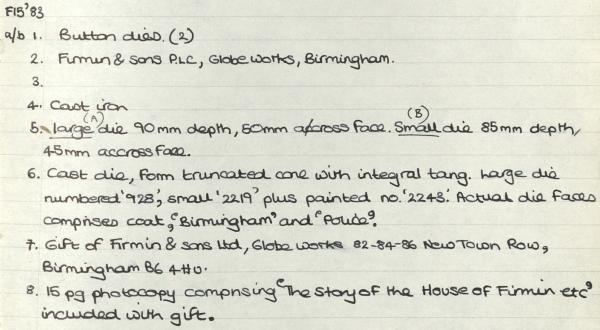 F15'83
a/b 1. Button dies. (2)
2. Firmin & sons P.L.C, Globe works, Birmingham.
3.
4. Cast iron
(A) (B)
5. large die 90mm depth, 50mm across face. Small die 85mm depth,
45mm accross face.
6. Cast die, form truncated cone with integral tang. Large die
numbered '928', small '2219' plus painted no. '2243'. Actual die faces
comprises coat, "Birmingham" and "Police".
7. Gift of Firmin & sons Ltd, Globe works 82-84-86 New Town Row,
Birmingham B6 4HU.
8. 15 pg photocopy comprising "The Story of the House of Firmin etc"
included with gift.